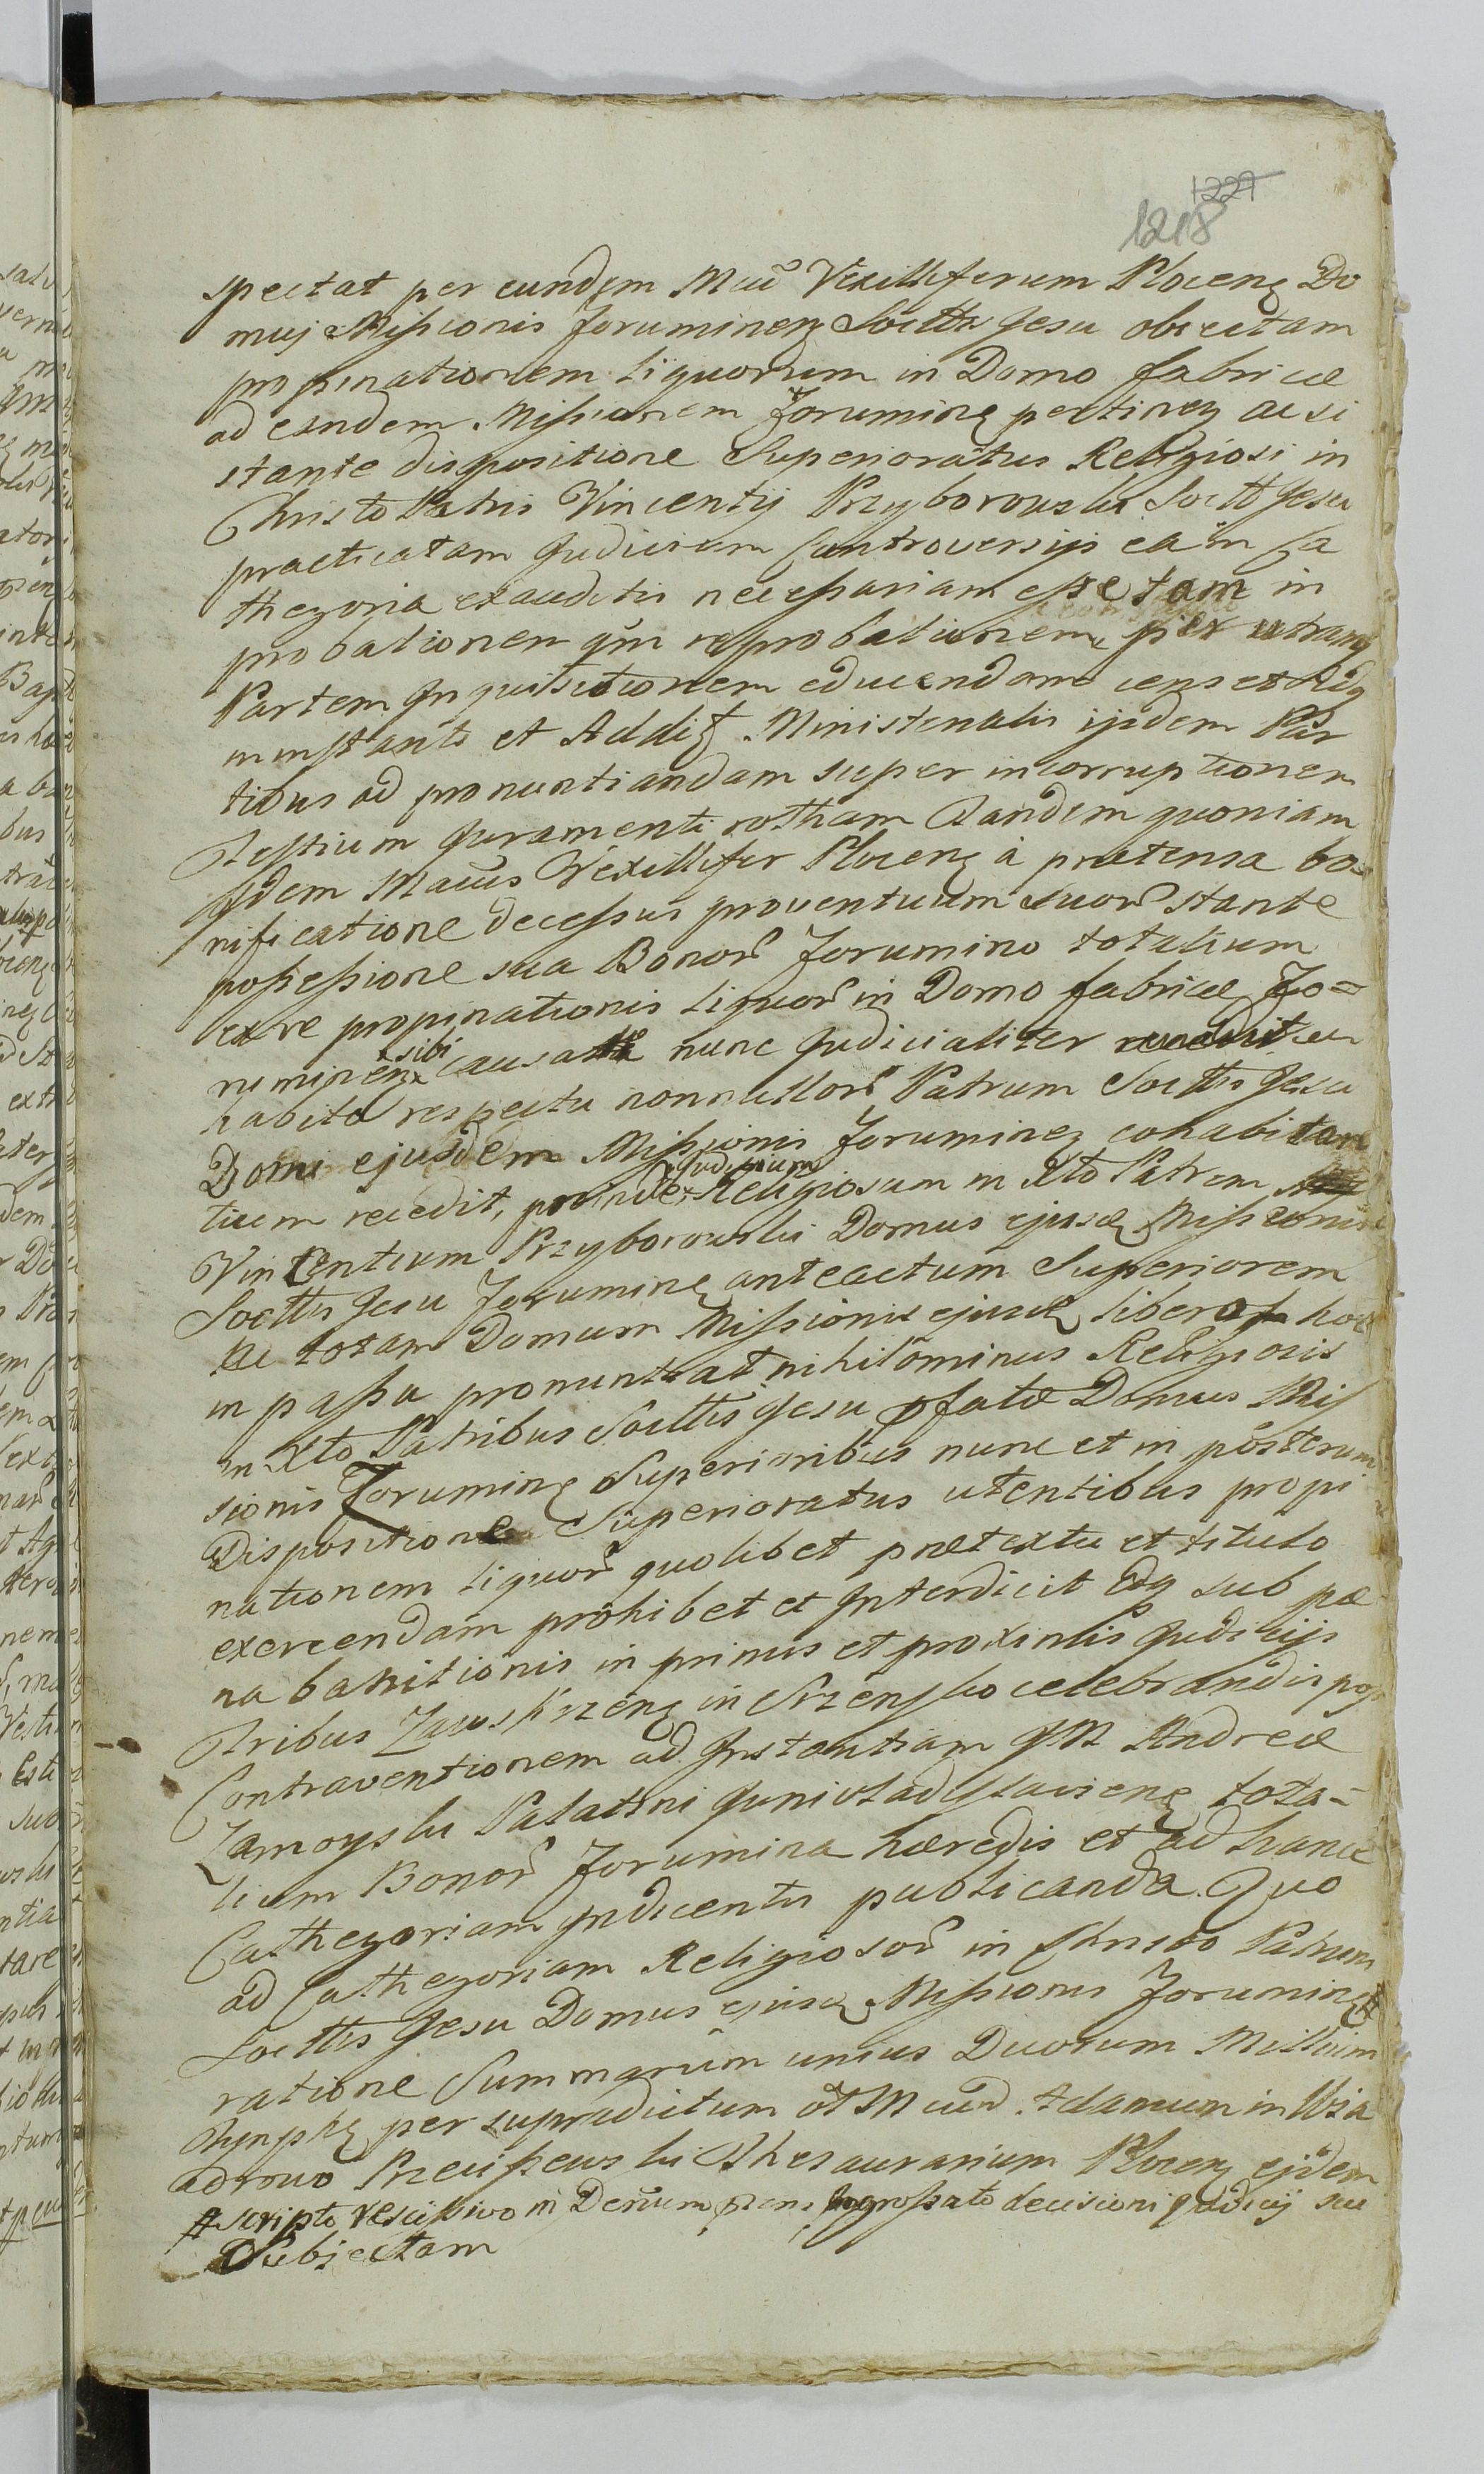 1227
1218
spectat per eundem Mcũ Vexilliferum Plocenę Do
muj Missionis Żoruminenę Soctts Jesu obiectam
propinationem liquorum in Domo fabricæ
ad eandem Missionem Żoruminę pertineñ ac si
stante dispositione Superioratus Religiosi in
Christo Patris Vincentij Przyborowski Soctt Jesu
practicatam Judicium Controversijs ea in Ca
thegoria exauditis necessariam esse tam in
probationem qm reprobationem per utramq
Partem Inquisitionem educendam censet Idq
in instanti et Addit Ministerialis ijsdem Par
tibus ad pronuntiandam super incorruptionem
Testium Juramenti rotham Tandem quoniam
Idem Mcũs Vexillifer Plocenę à prætensa bo=
nificatione decessus proventuum suor stante
possessione sua Bonor Żorumino totalium
ex re propinationis liquor in Domo fabricæ Żo=
ruminenę sibi causatæ nunc Judicialiter
habito respectu nonnullor Patrum Soctts Jesu
Domi ejusdem Missionis Żoruminenę cohabitan
tium recedit, proinde Judicium Religiosum in Xto Patrem
Vincentium Przyborowski Domus ejusd Missionis
Soctts Jesu Żoruminę anteactum Superiorem
ac totam Domum Missionis ejusd liberos hoc
in passu pronuntiat nihilominus Religiosis
in Xto Patribus Soctts Jesu pfatæ Domus Mis
sionis Żoruminę Superioribus nunc et in posterum
Dispositione Superioratus utentibus propi
nationem liquor quolibet prætextu et titulo
exercendam prohibet et Interdicit Idq sub pæ
na bannitionis in primis et proximis Judicijs
Tribus Zawskrzenę in Szrensko celebrandis post
Contraventionem ad Instantiam JM Andreæ
Zamoyski Palatini Junivladislaviensę tota=
lium Bonor Żorumina hæredis et ad hanc
Cathegoriam Indicentis publicanda. Quo
ad Cathegoriam Religiosor in Christo Patrum
Soctts Jesu Domus ejusd Missionis Żoruminę #
ratione Summarum unius Duorum Millium
Tynphę per supradictum ol M cũd Adamum in Uśa
adrowo Przeciszewski Thesaurarium Plocenę ejdem
# scripto rescissivo in ingrossato decisioni Judicij sui
Subjectam